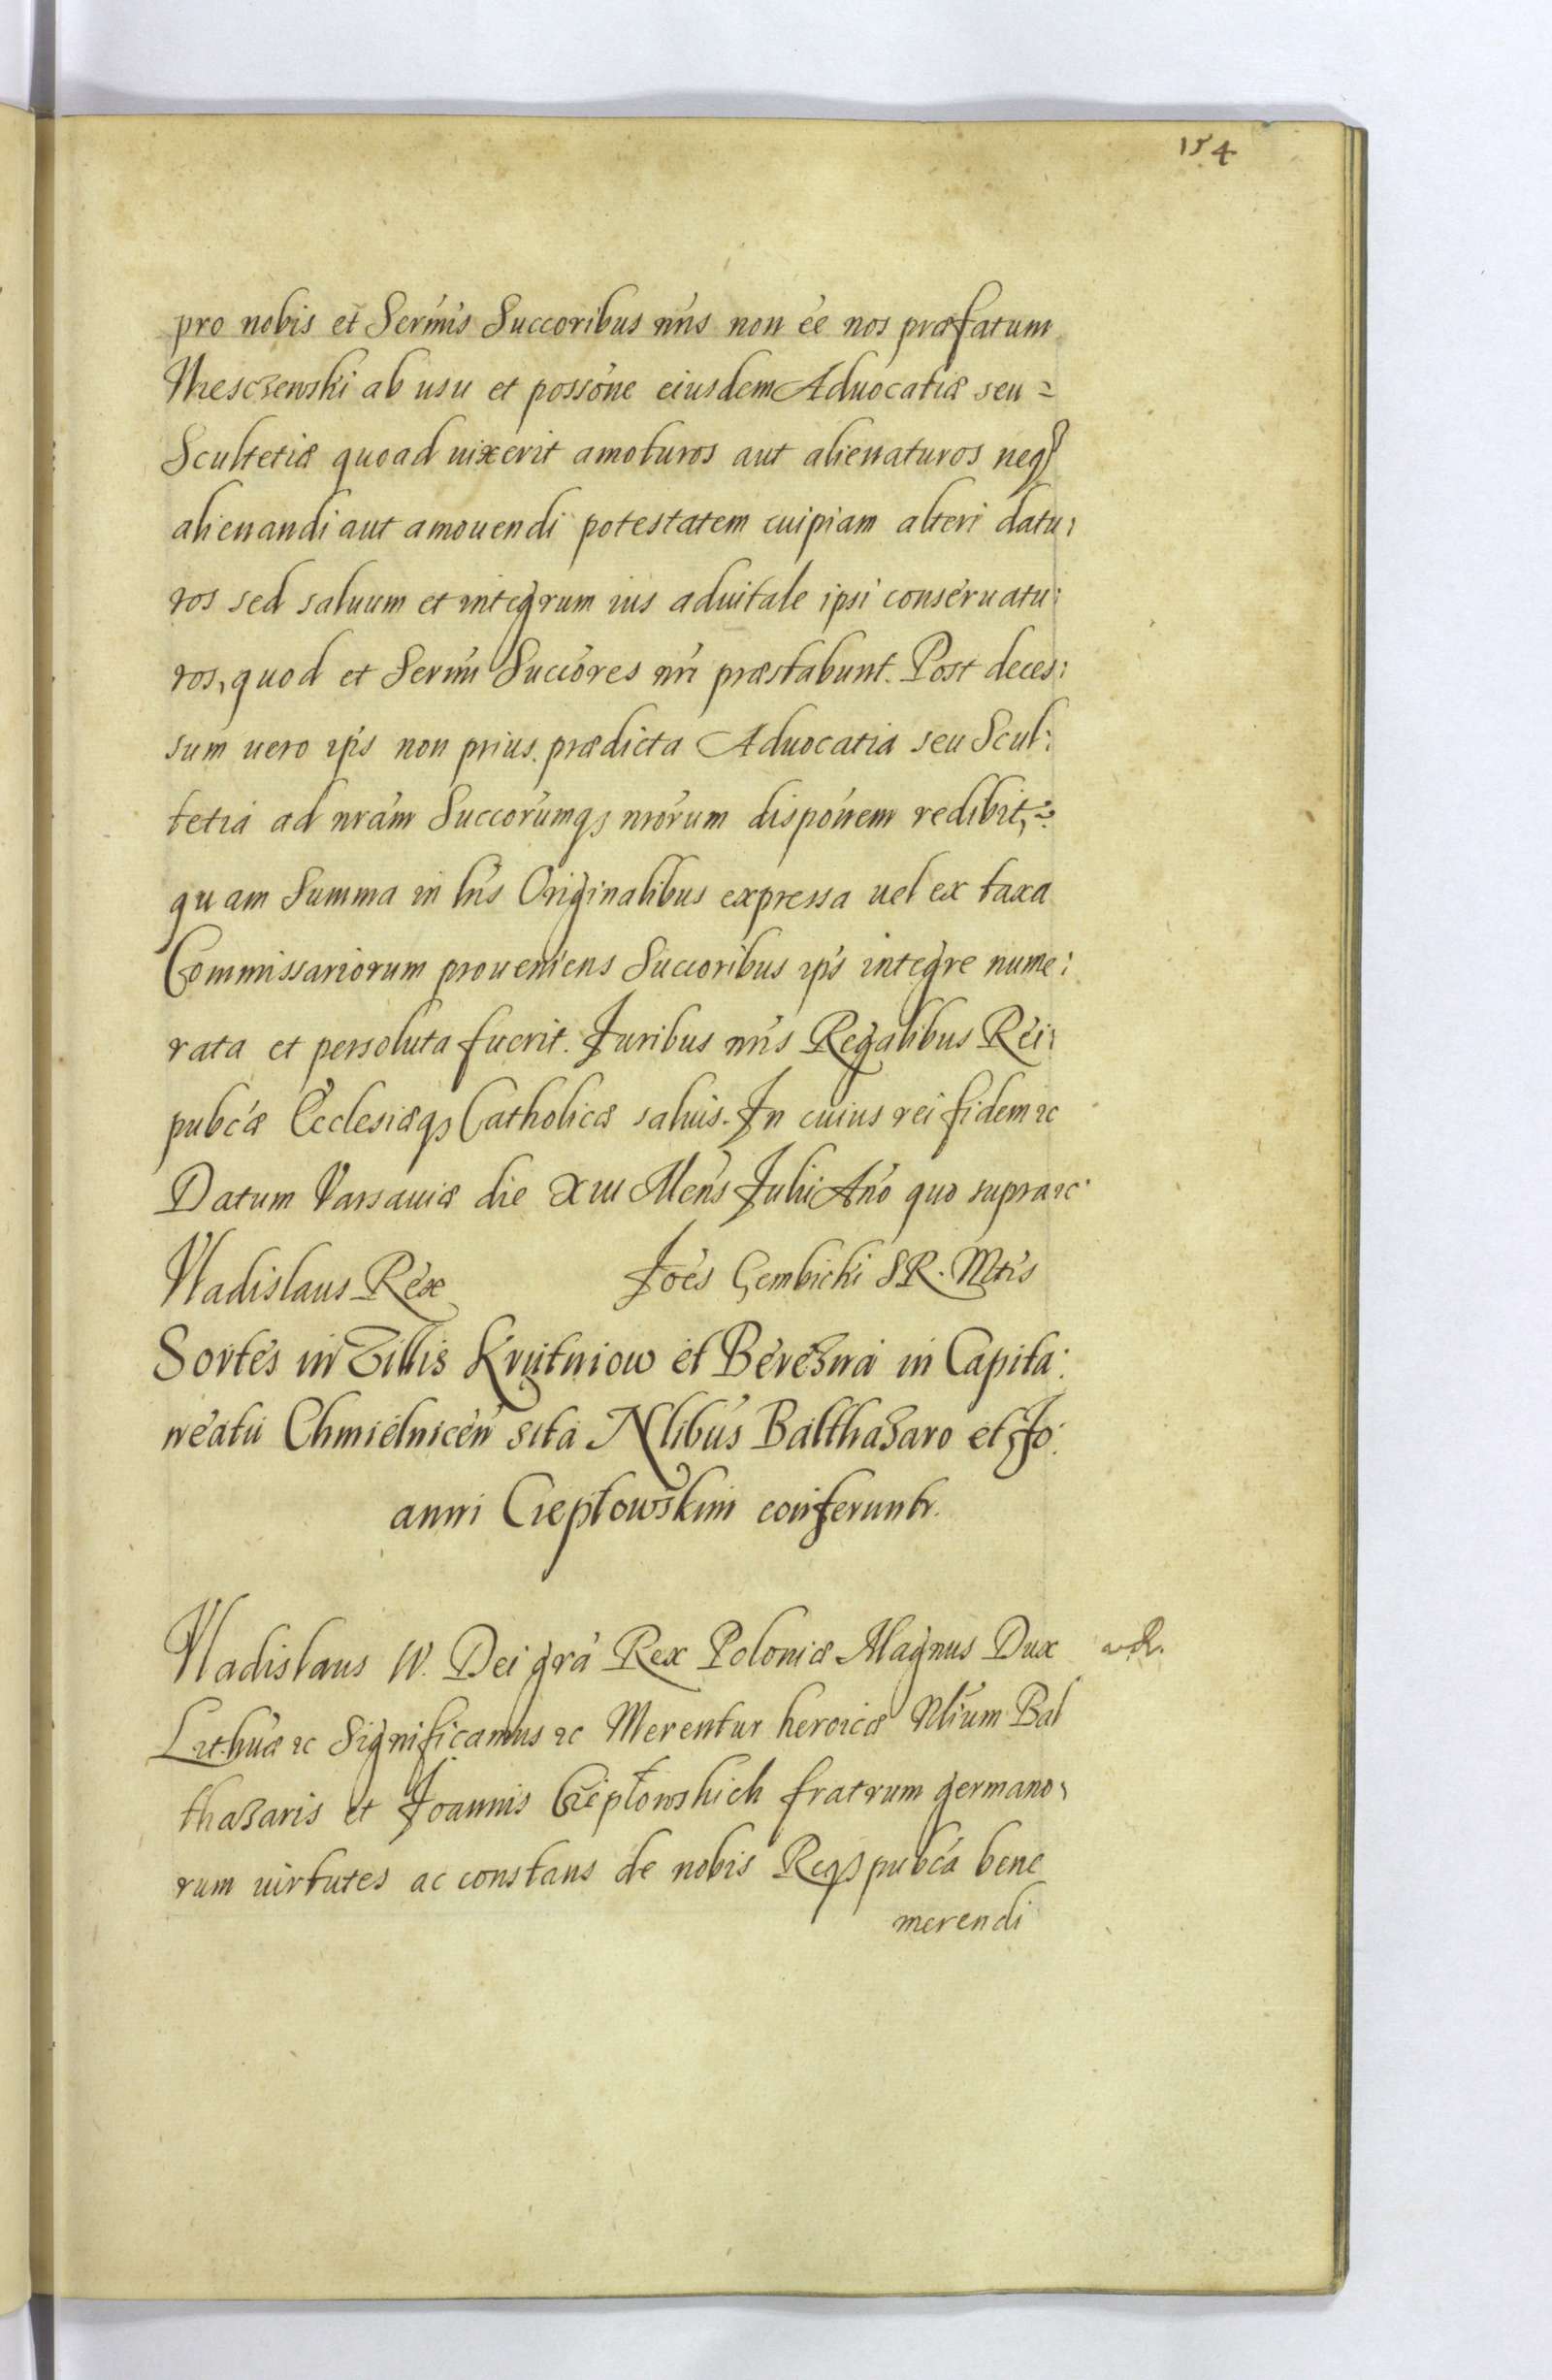 154
pro nobis et Sermis Succoribus nris non ee nos præfatum
Wresczewski ab usu et possone eiusdem Aduocatiæ seu
Scultetiæ quoad uixerit amoturos aut alienaturos neq
alienandi aut amouendi potestatem cuipiam alteri datu:
ros sed saluum et integrum ius aduitale ipsi conseruatu:
ros, quod et Sermi Succores nri præstabunt. Post deces:
sum uero ips non prius prædicta Aduocatia seu Scul:
tetia ad nram Succorumq nrorum disponem redibit,
quam Summa in lris Originalibus expressa uel ex taxa
Commissariorum proueniens Succoribus ips integre nume:
rata et persoluta fuerit. Juribus nris Regalibus Rei:
pubcæ Ecclesiæq Catholicæ saluis. In cuius rei fidem ꝛc
Datum Varsauiæ die XIII Mens Julii Ano quo supra ꝛc
Vladislaus Rex Joes Gembicki S R. Mtis
Sortes in Villis Krutniow et Berezna in Capita:
neatu Chmielnicen sita Nlibus Balthazaro et Jo:
anni Ciepłowskim conferuntr.
Vladislaus IV. Dei gra Rex Poloniæ Magnus Dux
Lithuæ ꝛc Significamus ꝛc Merentur heroicæ Nlium Bal
thazaris et Joannis Ciepłowskich fratrum germano:
rum uirtutes ac constans de nobis Reqpubca bene
merendi